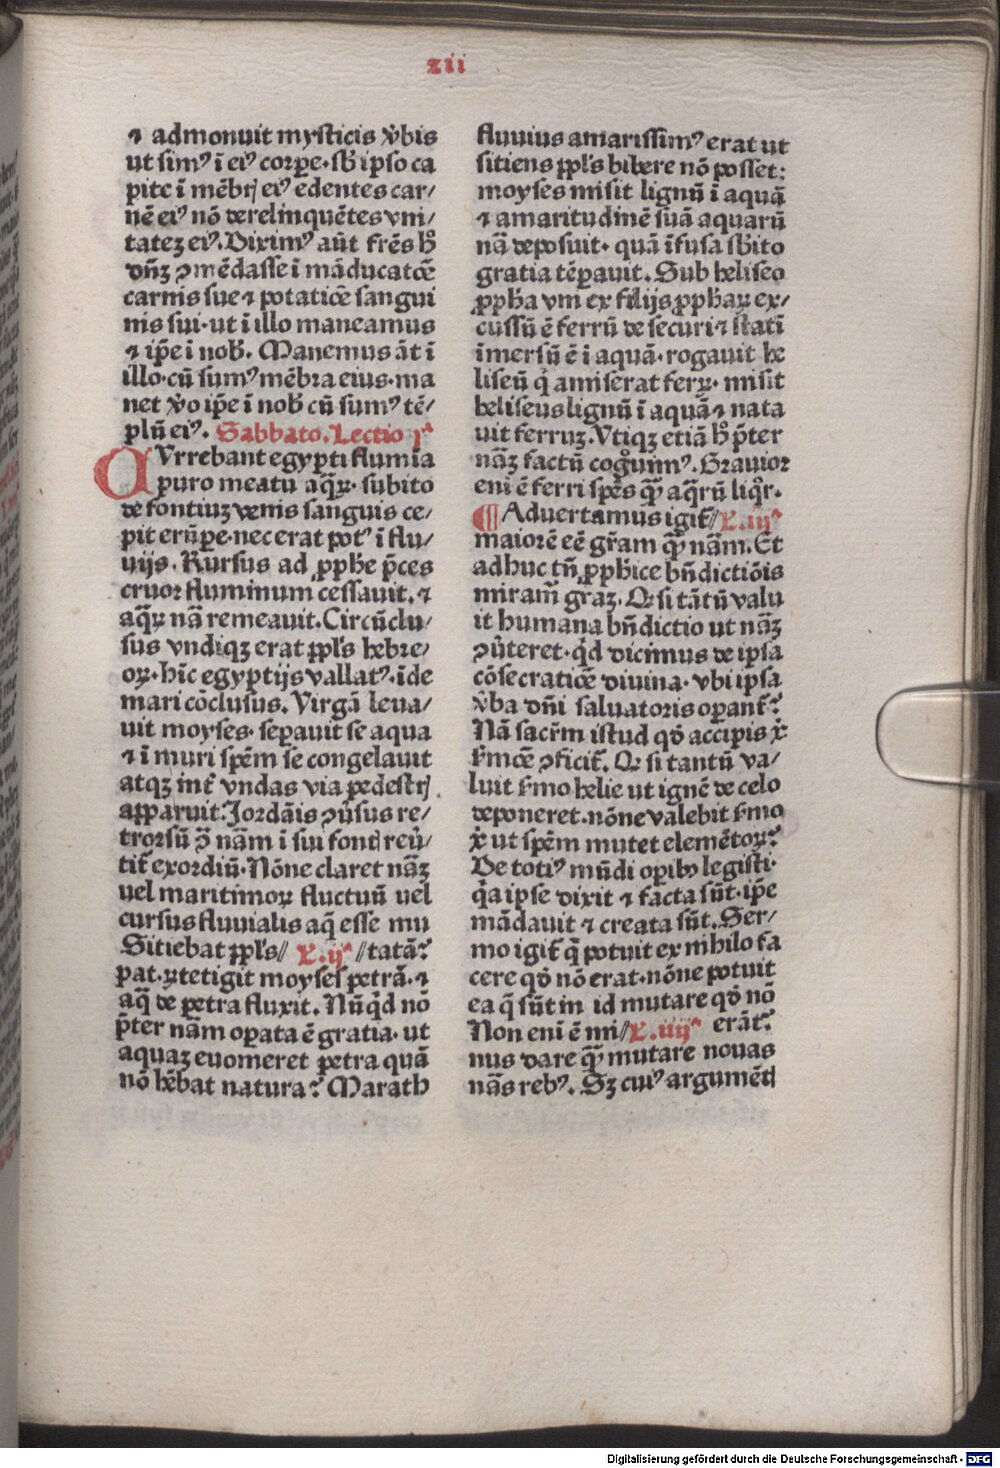 xii
⁊ admonuit mysticis v̾bis
ut simꝰ ī eiꝰ corꝑe· sb̾ ipso ca
pite ī mēbrꝭ eiꝰ edentes car/
nē eiꝰ nō derelinquētes vni/
tatēꝫ eiꝰ. Diximꝰ aūt fr̄es hͦ
dn̄ꝫ ꝯmēdasse ī māducatōe
carnis sue ⁊ potatiōe sangui
nis sui· ut ī illo maneamus
⁊ ip̄e ī nob̾. Manemus āt ī
illo· cū sumꝰ mēbra eius· ma
net v̾o ip̄e ī nob̾ cū sumꝰ tē/
plū eiꝰ. Sabbato. Lectio jᵃ
CUrrebant egypti flumīa
puro meatu aq̄ꝝ· subito
de fontiuꝫ venis sanguis ce/
pit erūpe· nec erat potꝰ ī flu/
uijs. Rursus ad ꝓph̄e p̄ces
cruor fluminum cessauit. ⁊
aq̄ꝝ nā remeauit. Circūclu/
sus vndiqꝫ erat ppl̄s hebre/
oꝝ· hīc egyptijs vallatꝰ· īde
mari cōclusus. Virgā leua/
uit moyses· sepauit se aqua
⁊ ī muri spēm se congelauit
atqꝫ int̄ vndas via pedestrꝭ
apparuit. Jordāis ꝯūsus re/
trorsū ꝯ̄ nām ī sui fontꝭ reū/
tit̄ exordiū. Nōne claret nāꝫ
uel maritimoꝝ fluctuū uel
cursus fluuialis aq̄ esse mu
Sitiebat ppl̄s// L.ijᵃ //tatā?
pat.ꝝ tetigit moyses petrā. ⁊
aq̄ de petra fluxit. Nūq̄d nō
p̄ter nām oꝑata ē gratia· ut
aquaꝫ euomeret petra quā
nō hēbat natura? Marath
fluuius amarissimꝰ erat ut
sitiens ppl̄s bibere nō posset:
moyses misit lignū ī aquā
⁊ amaritudinē suā aquarū
nā deposuit· quā īfusa sb̾ito
gratia tēꝑauit. Sub heliseo
ꝓph̄a vni ex filijs ꝓph̄aꝝ ex/
cussū ē ferrū de securi ⁊ statī
īmersū ē ī aquā· rogauit he
liseū q̇ amiserat ferꝝ· misit
heliseus lignū ī aquā ⁊ nata
uit ferruꝫ. Utiqꝫ etiā hͦ p̄ter
nāꝫ factū cogͦuimꝰ. Grauior
eni ē ferri spēs qꝫ̄ aq̄rū liq̊r.
¶ Aduertamus igit̄// L.iijᵃ
maiorē eē gr̄am qꝫ̄ nām. Et
adhuc tn̄ ꝓph̄ice bn̄dictiōis
miram̄ graꝫ. Qꝛ si tātū valu
it humana bn̄dictio ut nāꝫ
ꝯūteret· q̇d dicimus de ipsa
cōsecratiōe diuina· vbi ipsa
v̾ba dn̄i saluatoris oꝑant̄?
Nā sacr̄m istud qd̾ accipis x̄
s̾mōe ꝯficit̄. Qꝛ si tantū va/
luit s̾mo helie ut ignē de celo
deponeret· nōne valebit s̾mo
x̄ ut spēm mutet elemētoꝝ?
De totiꝰ mūdi oꝑibꝰ legisti·
q̇a ipse dixit ⁊ facta sūt· ip̄e
mādauit ⁊ creata sūt. Ser/
mo igit̄ q̄ potuit ex nihilo fa
cere qd̾ nō erat· nōne potuit
ea q̄ sūt in id mutare qd̾ nō
Non eni ē mi// L.iiijᵃ erāt?
nus dare qꝫ̄ mutare nouas
nās rebꝰ. Sꝫ cuiꝰ argumētꝭ
Digitalisierung gefördert durch die Deutsche Forschungsgemeinschaft - DFG